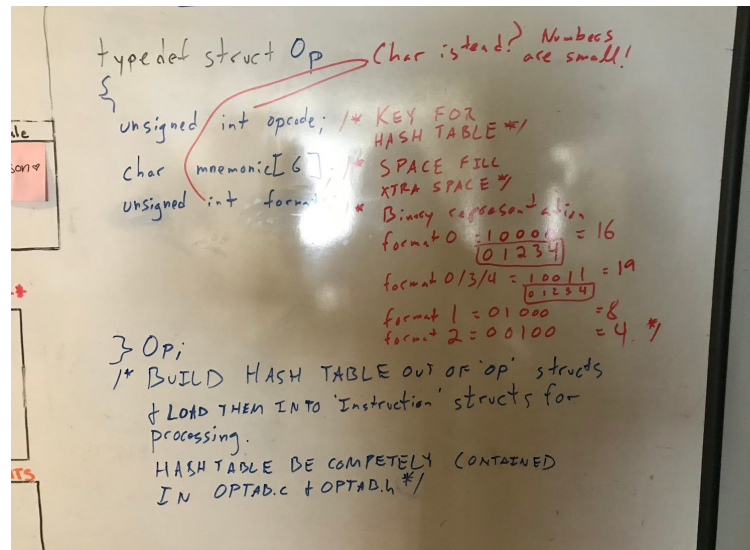 typedef struct Op
Char istead? Numbers
are small!
{
unsigned int opcode; /* KEY FOR
HASH TABLE */
char mnemonic[6]; /* SPACE FILL
XTRA SPACE */
unsigned int format /* Binary representation
format 0 = 10000 = 16
01234
format 0/3/4 = 10011 = 19
01234
format 1 = 01000 = 8
format 2 = 00100 = 4 */
} Op;
/* BUILD HASH TABLE OUT OF 'OP' structs
& LOAD THEM INTO 'Instruction' structs for
processing.
HASH TABLE BE COMPETELY CONTAINED
IN OPTAB.c & OPTAB.h */